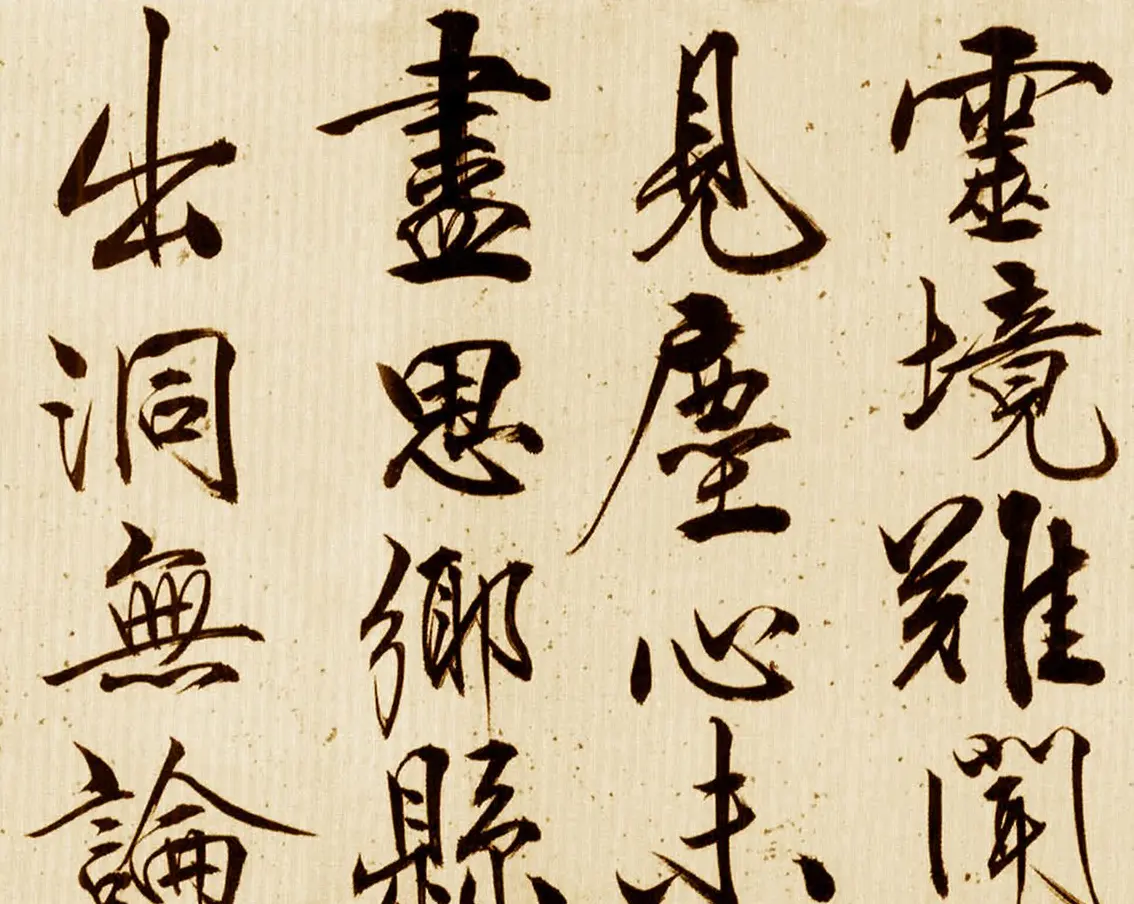 靈境難聞
見塵心未
盡思鄉縣
出洞無論